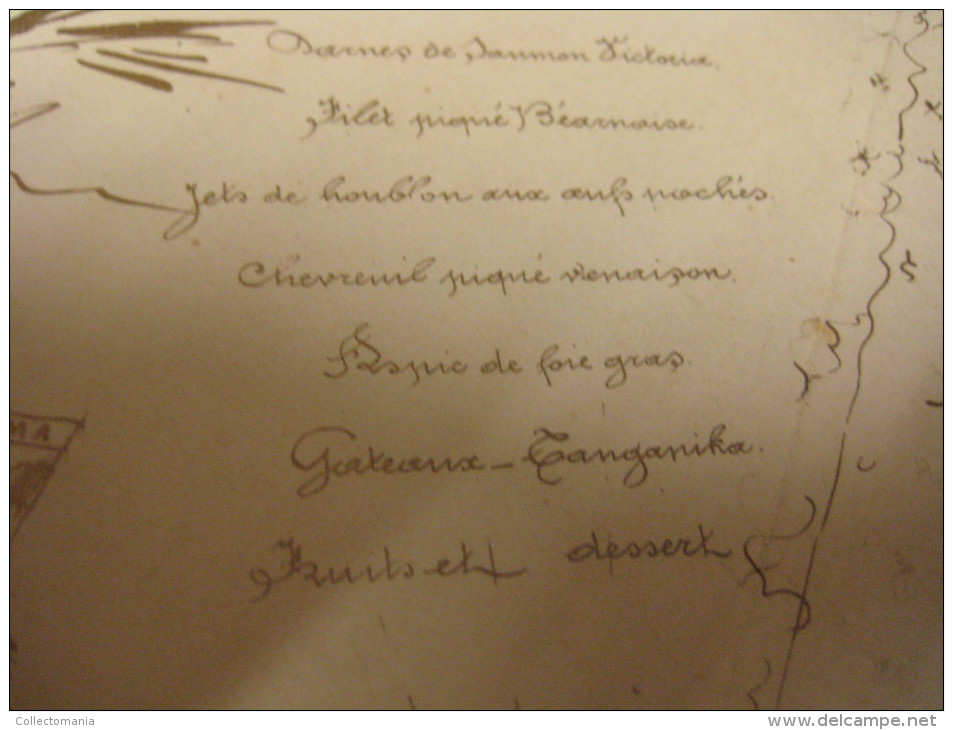 Darnes de Saumon Victoria.
Filet piqué Béarnaise.
Jets de houblon aux œufs pochés.
Chevreuil piqué venaison.
Aspic de foie gras.
Gateaux - Tanganika.
Fruits et dessert
MA
Collectomania
www.delcampe.net